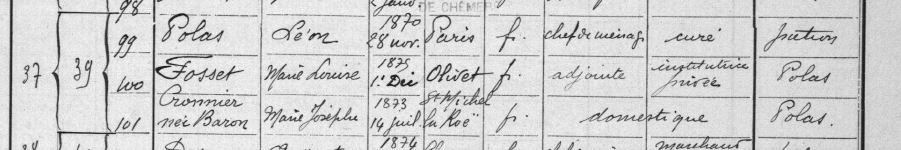 98
DE CHÉMER
99 Polas Léon 1870 28 nov. Paris fr. chef de ménage curé patron
37 39
100 Fosset Marie Louise 1875 1. Déc Olivet fr. adjointe institutrice privée Polas
101 Cronnier née Baron Marie Josèphe 1873 14 juil. St Michel la Roë fr. domestique Polas.
1874 marchand